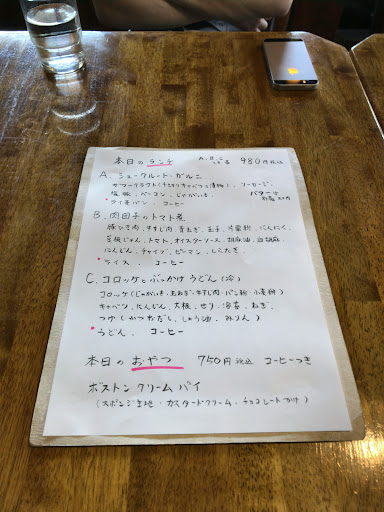 本日のランチ A.B.C 980円税込
A. シュークルート・ガルニ
ザワークラウト(千切りキャベツと漬物)、ソーセージ、
塩豚、ベーコン、じゃがいも、 バター
ライ麦パン、コーヒー
B. 肉団子のトマト煮
豚ひき肉、牛すじ肉、玉ねぎ、玉子、片栗粉、にんにく、
豆板じゃん、トマト、オイスターソース、胡麻油、白胡麻、
にんじん、チャイブ、ピーマン、しらたき
ライス、コーヒー
C. コロッケとぶっかけうどん(冷)
コロッケ(じゃがいも・玉ねぎ・牛すじ肉・パン粉・小麦粉)
キャベツ、にんじん、大根、せり、海苔、ねぎ、
つゆ(かつおだし、しょう油、みりん)
うどん、コーヒー
本日のおやつ 750円税込 コーヒーつき
ボストンクリームパイ
(スポンジ生地・カスタードクリーム・チョコレートがけ)